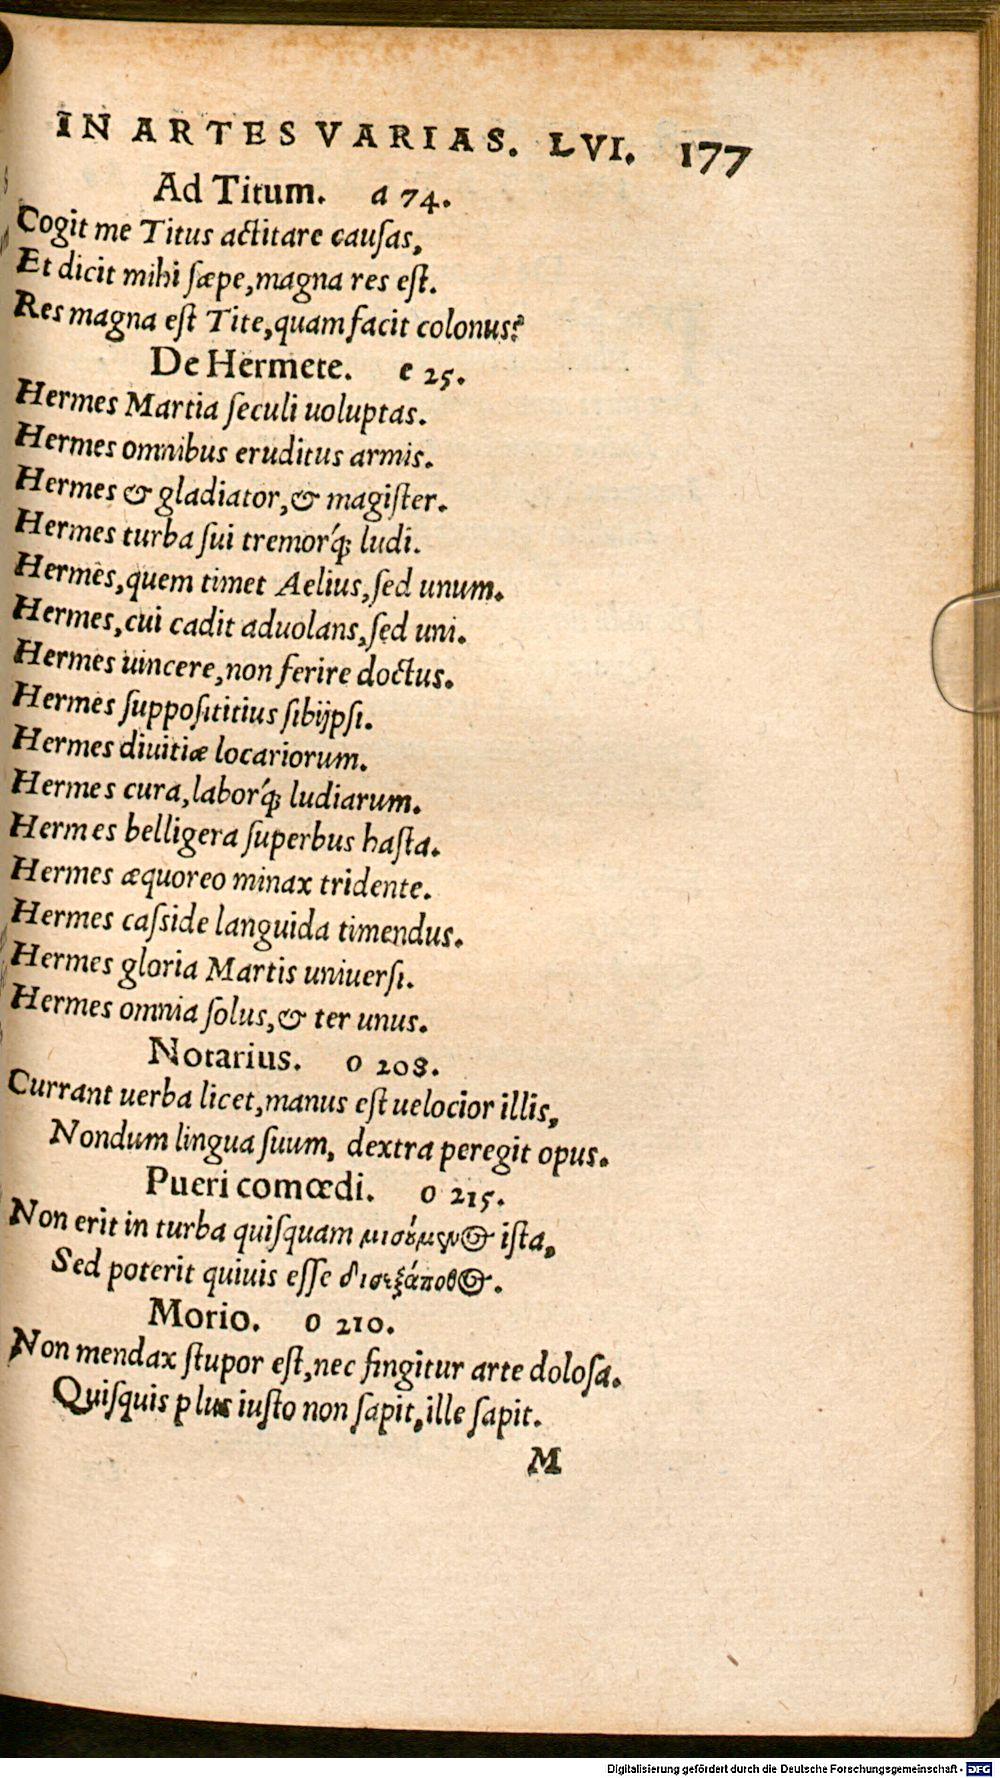 IN ARTES VARIAS. LVI. 177
Ad Titum. a 74.
Cogit me Titus actitare cauſas,
Et dicit mihi ſæpe, magna res eſt.
Res magna eſt Tite, quam facit colonus?
De Hermete. e 25.
Hermes Martia ſeculi uoluptas.
Hermes omnibus eruditus armis.
Hermes & gladiator, & magiſter.
Hermes turba ſui tremorq́; ludi.
Hermes, quem timet Aelius, ſed unum.
Hermes, cui cadit aduolans, ſed uni.
Hermes uincere, non ferire doctus.
Hermes ſuppoſititius ſibijpſi.
Hermes diuitiæ locariorum.
Hermes cura, laborq́; ludiarum.
Hermes belligera ſuperbus haſta.
Hermes æquoreo minax tridente.
Hermes caſside languida timendus.
Hermes gloria Martis uniuerſi.
Hermes omnia ſolus, & ter unus.
Notarius. o 208.
Currant uerba licet, manus eſt uelocior illis,
Nondum lingua ſuum, dextra peregit opus.
Pueri comœdi. o 215.
Non erit in turba quiſquam μισούμενος iſta,
Sed poterit quiuis eſſe δισεξάπατος.
Morio. o 210.
Non mendax ſtupor eſt, nec fingitur arte doloſa.
Quiſquis plus iuſto non ſapit, ille ſapit.
M
Digitalisierung gefördert durch die Deutsche Forschungsgemeinschaft - DFG